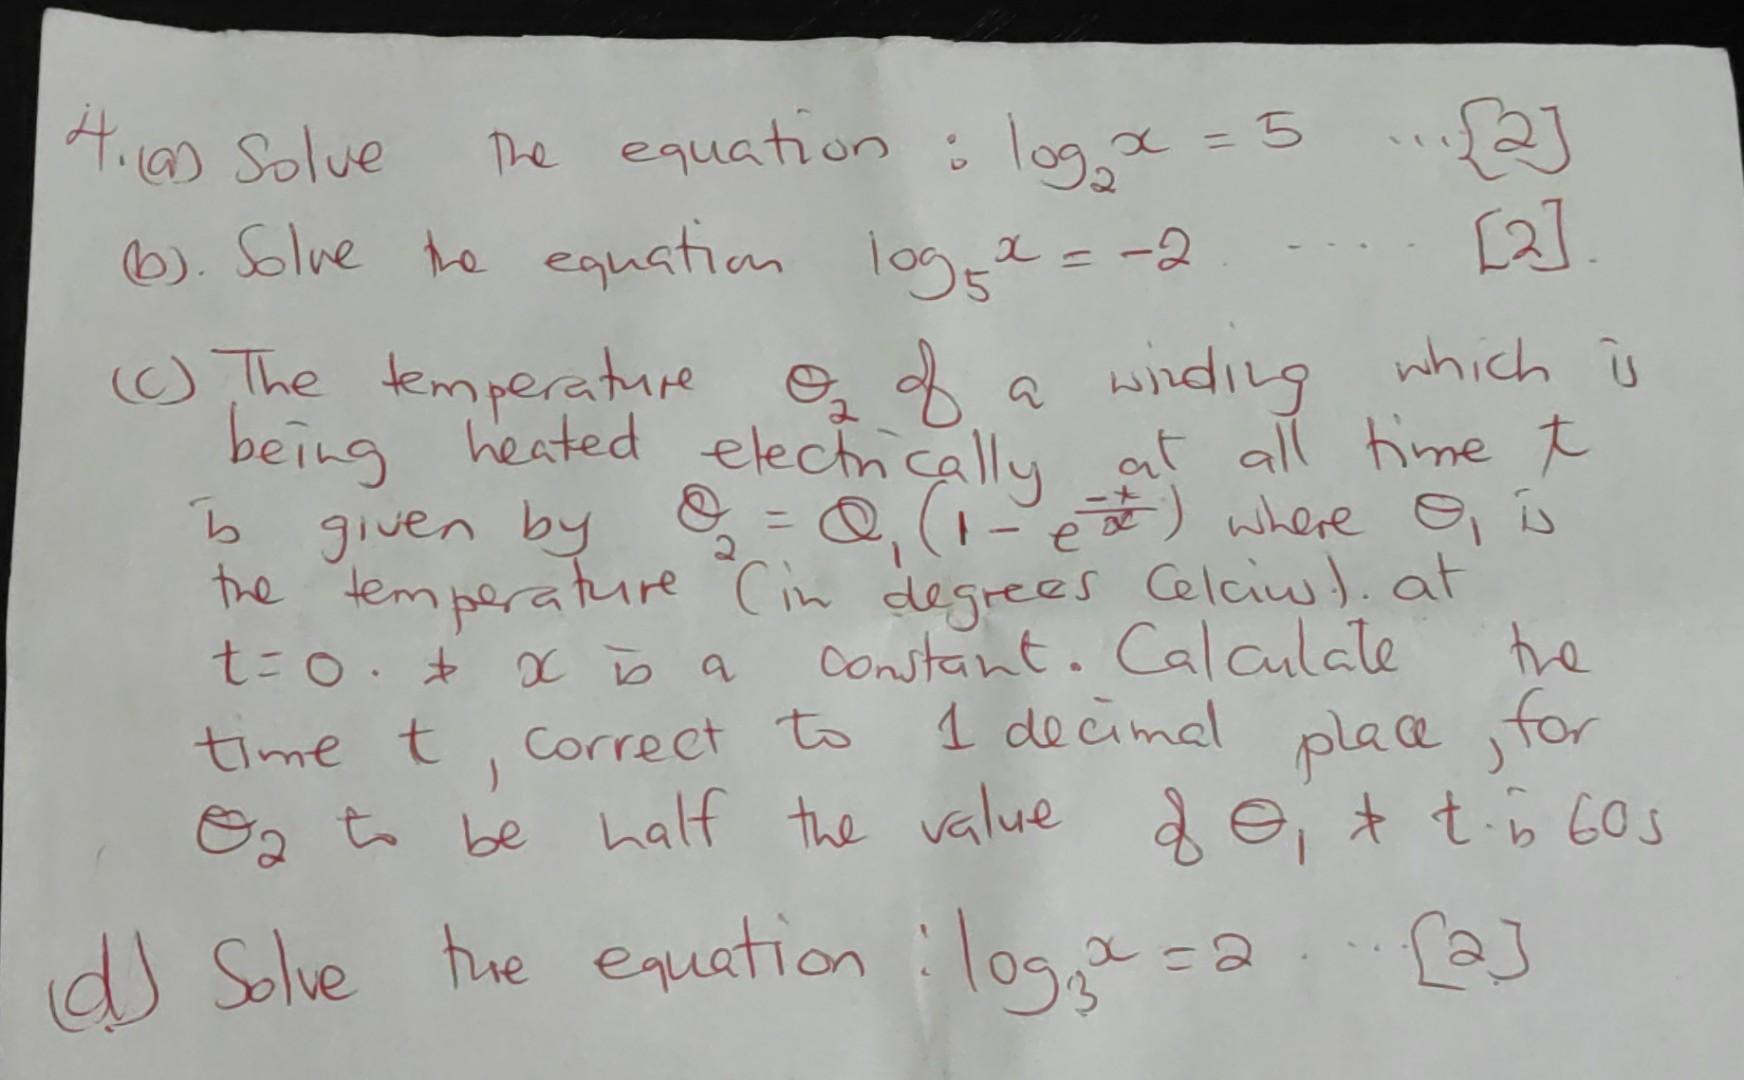 4.(a) Solve the equation : log₂x = 5 ...[2]
(b). Solve the equation log₅x = -2 ..... [2].
(c) The temperature θ₂ of a winding which is
being heated electrically at all time t
is given by θ₂ = θ₁(1 - e^(-t/x)) where θ₁ is
the temperature (in degrees Celcius). at
t=0. & x is a constant. Calculate the
time t, correct to 1 decimal place, for
θ₂ to be half the value of θ₁ & t is 60s
(d) Solve the equation : log₃x = 2 . ...[2]